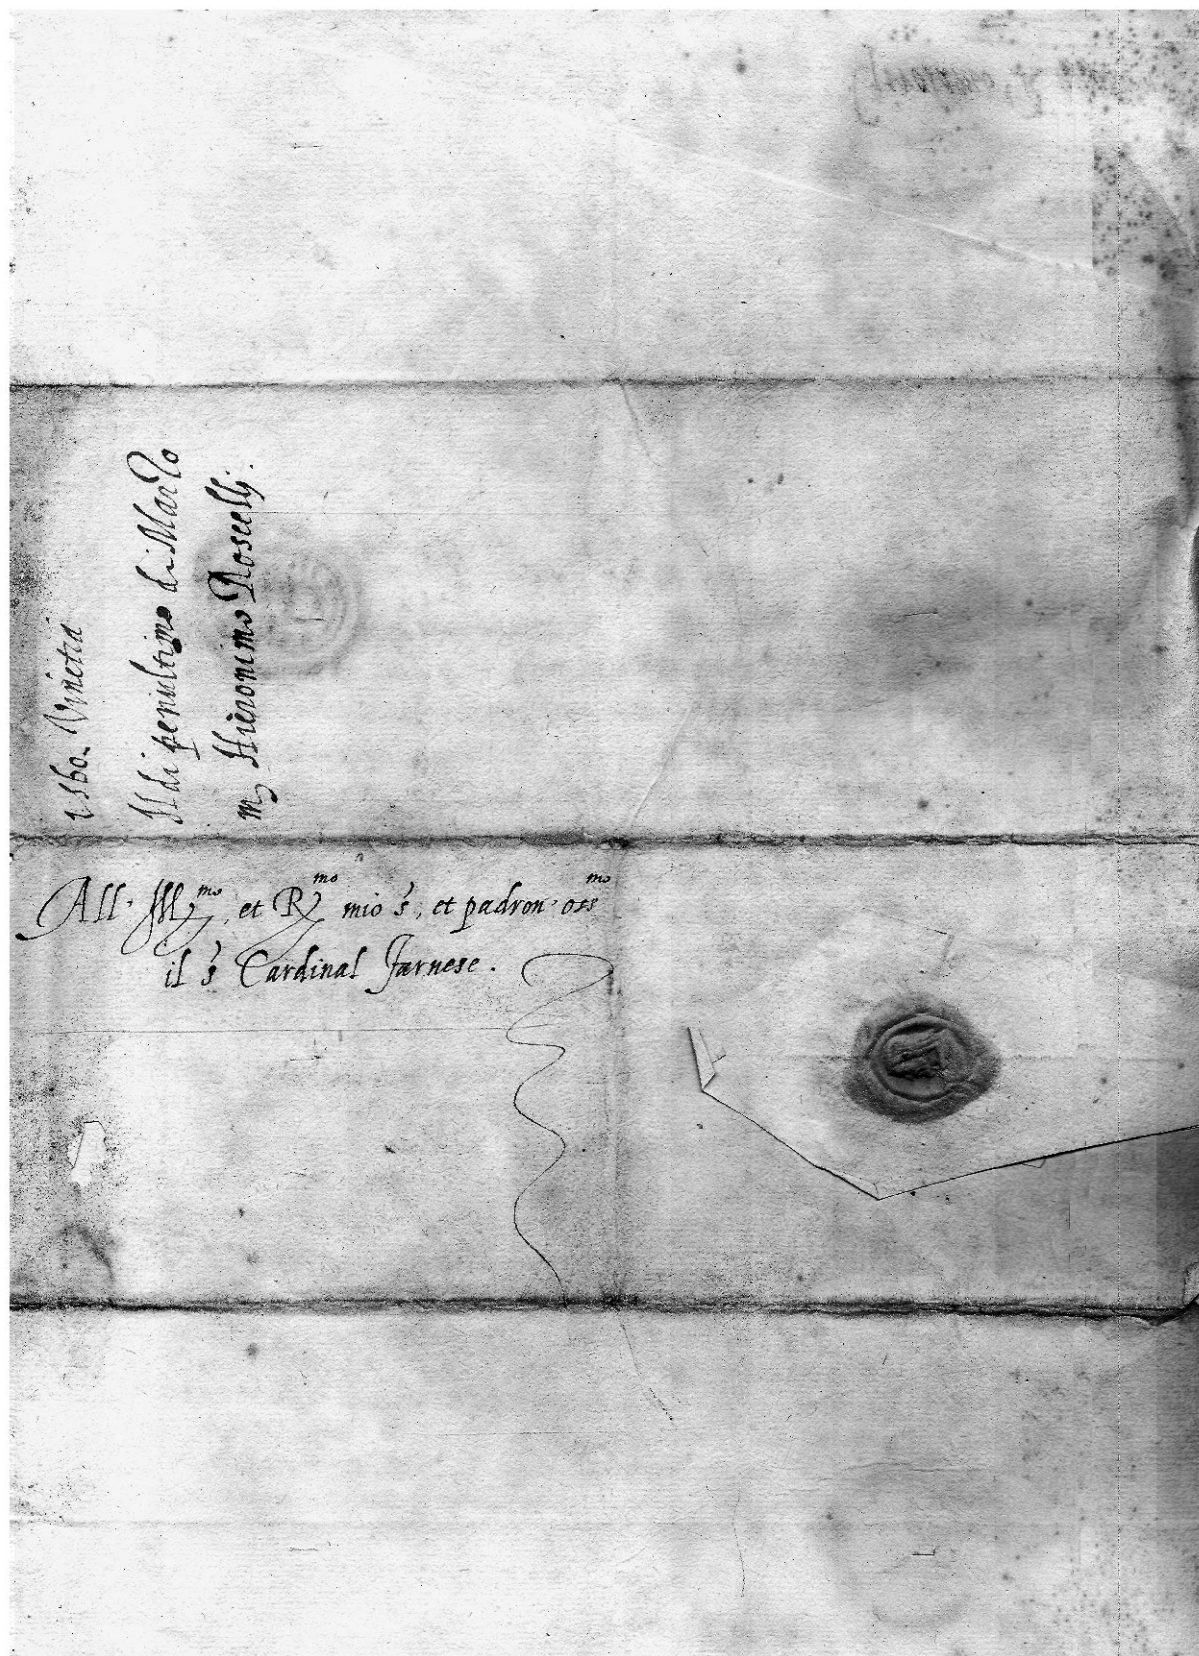 1560. Vinetia
Il di penultimo di Marzo
m Hieronimo Roscelli.
All. Ill.mo, et R.mo mio s.r, et padron. oss.mo
il s.r Cardinal Farnese.